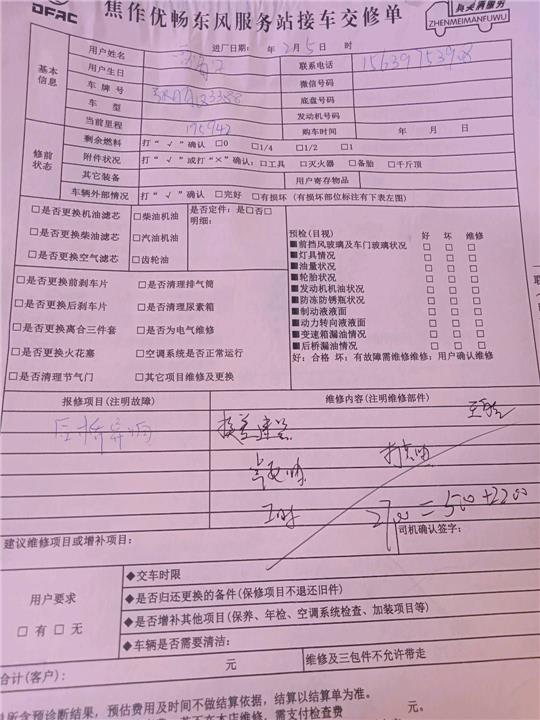 DFAC
焦作优畅东风服务站接车交修单
ZHENMEIMANFUWU
基本信息
用户姓名 进厂日期: 年 2月5日 时
用户生日 联系电话
车牌号 微信号码
车型 底盘号码
当前里程 175942 发动机号码
购车时间 年 月 日
修前状态
剩余燃料 打“√”确认 □0 □1/4 □1/2 □1
附件状况 打“√”或打“×”确认:□工具 □灭火器 □备胎 □千斤顶
其它装备 用户寄存物品
车辆外部情况 打“√”确认 □完好 □有损坏(有损坏部位标注有下表左图)
□是否更换机油滤芯 □柴油机油 是否定件:是□否□
明细:
□是否更换柴油滤芯 □汽油机油
□是否更换空气滤芯 □齿轮油
预检(目视) 好 坏 维修
■前挡风玻璃及车门玻璃状况 □ □ □
■灯具情况 □ □ □
■油量状况 □ □ □
■轮胎状况 □ □ □
■发动机机油状况 □ □ □
■防冻防锈瓶状况 □ □ □
■制动液液面 □ □ □
■动力转向液液面 □ □ □
■变速箱漏油情况 □ □ □
■后桥漏油情况 □ □ □
好:合格 坏:有故障需维修维修:用户确认维修
□是否更换前刹车片 □是否清理排气筒
□是否更换后刹车片 □是否清理尿素箱
□是否更换离合三件套 □是否为电气维修
□是否更换火花塞 □空调系统是否正常运行
□是否清理节气门 □其它项目维修及更换
报修项目(注明故障) 维修内容(注明维修部件)
后桥异响
2700=500+2200
司机确认签字:
建议维修项目或增补项目:
用户要求
□有□无
◆交车时限
◆是否归还更换的备件(保修项目不退还旧件)
◆是否增补其他项目(保养、年检、空调系统检查、加装项目等)
◆车辆是否需要清洁:
合计(客户): 元 维修及三包件不允许带走
所含预诊断结果,预估费用及时间不做结算依据,结算以结算单为准。
需支付检查费 元。